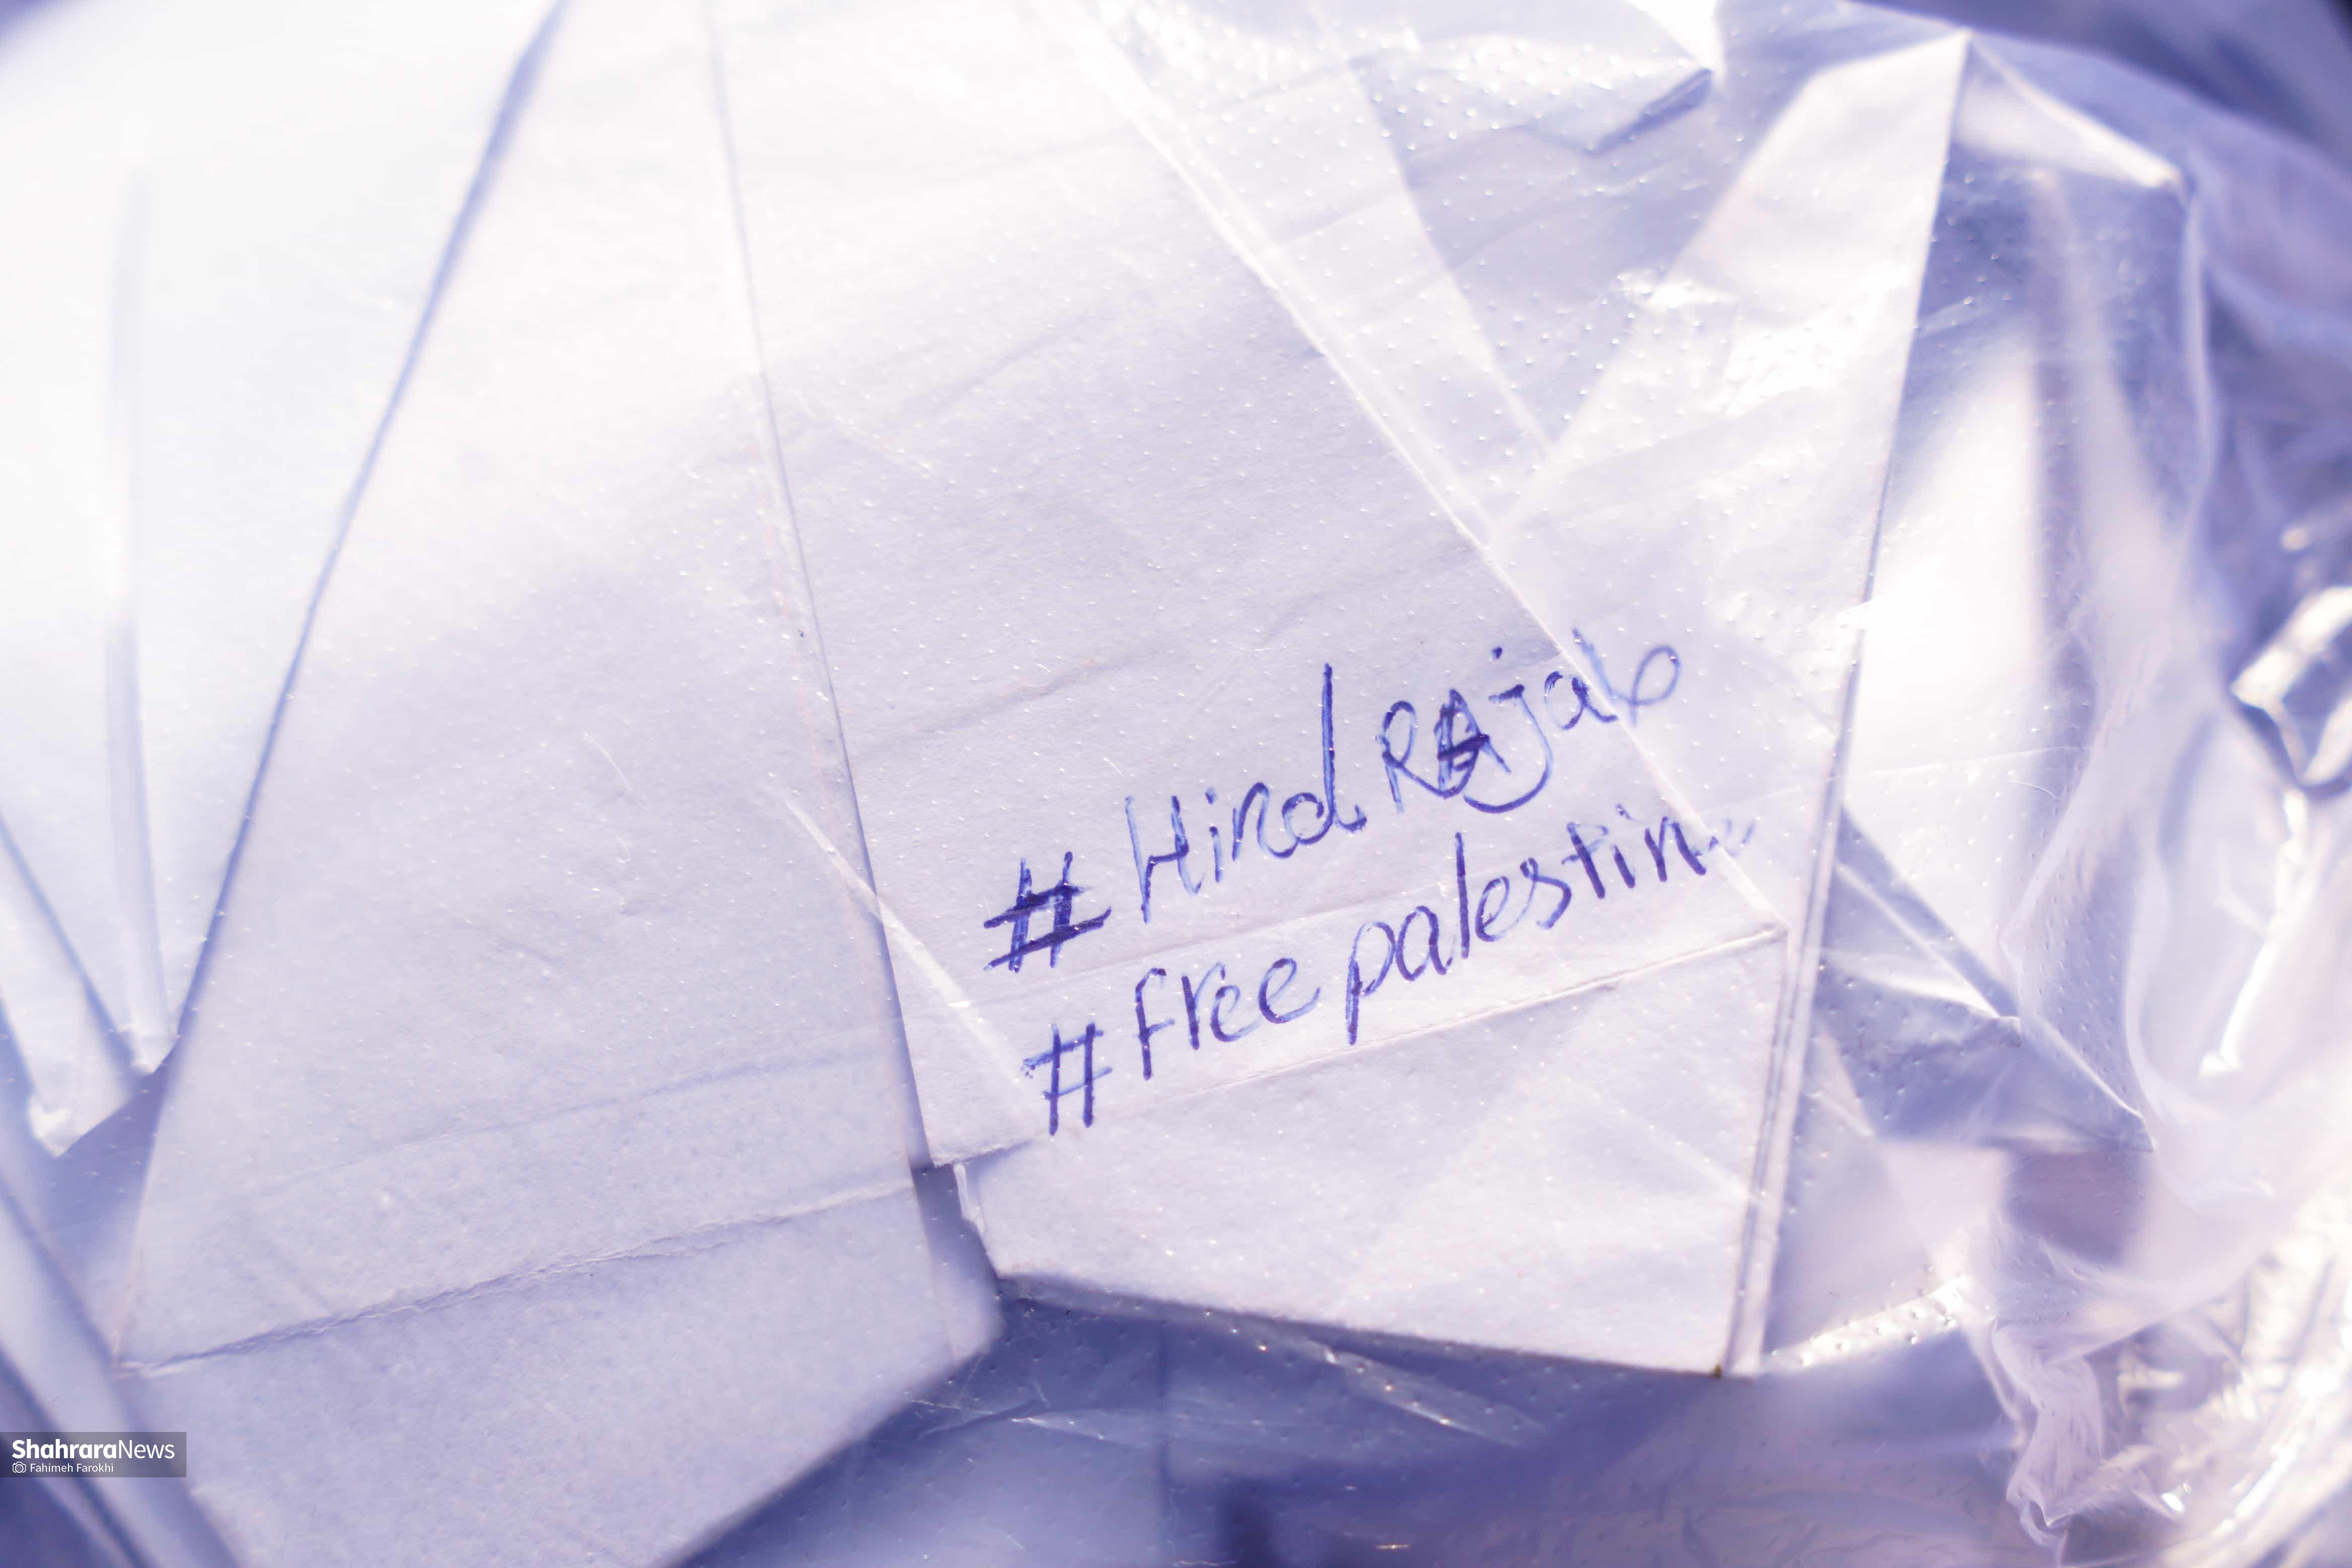 # Hind Rajab
# free palestine
ShahraraNews
Fahimeh Farokhi